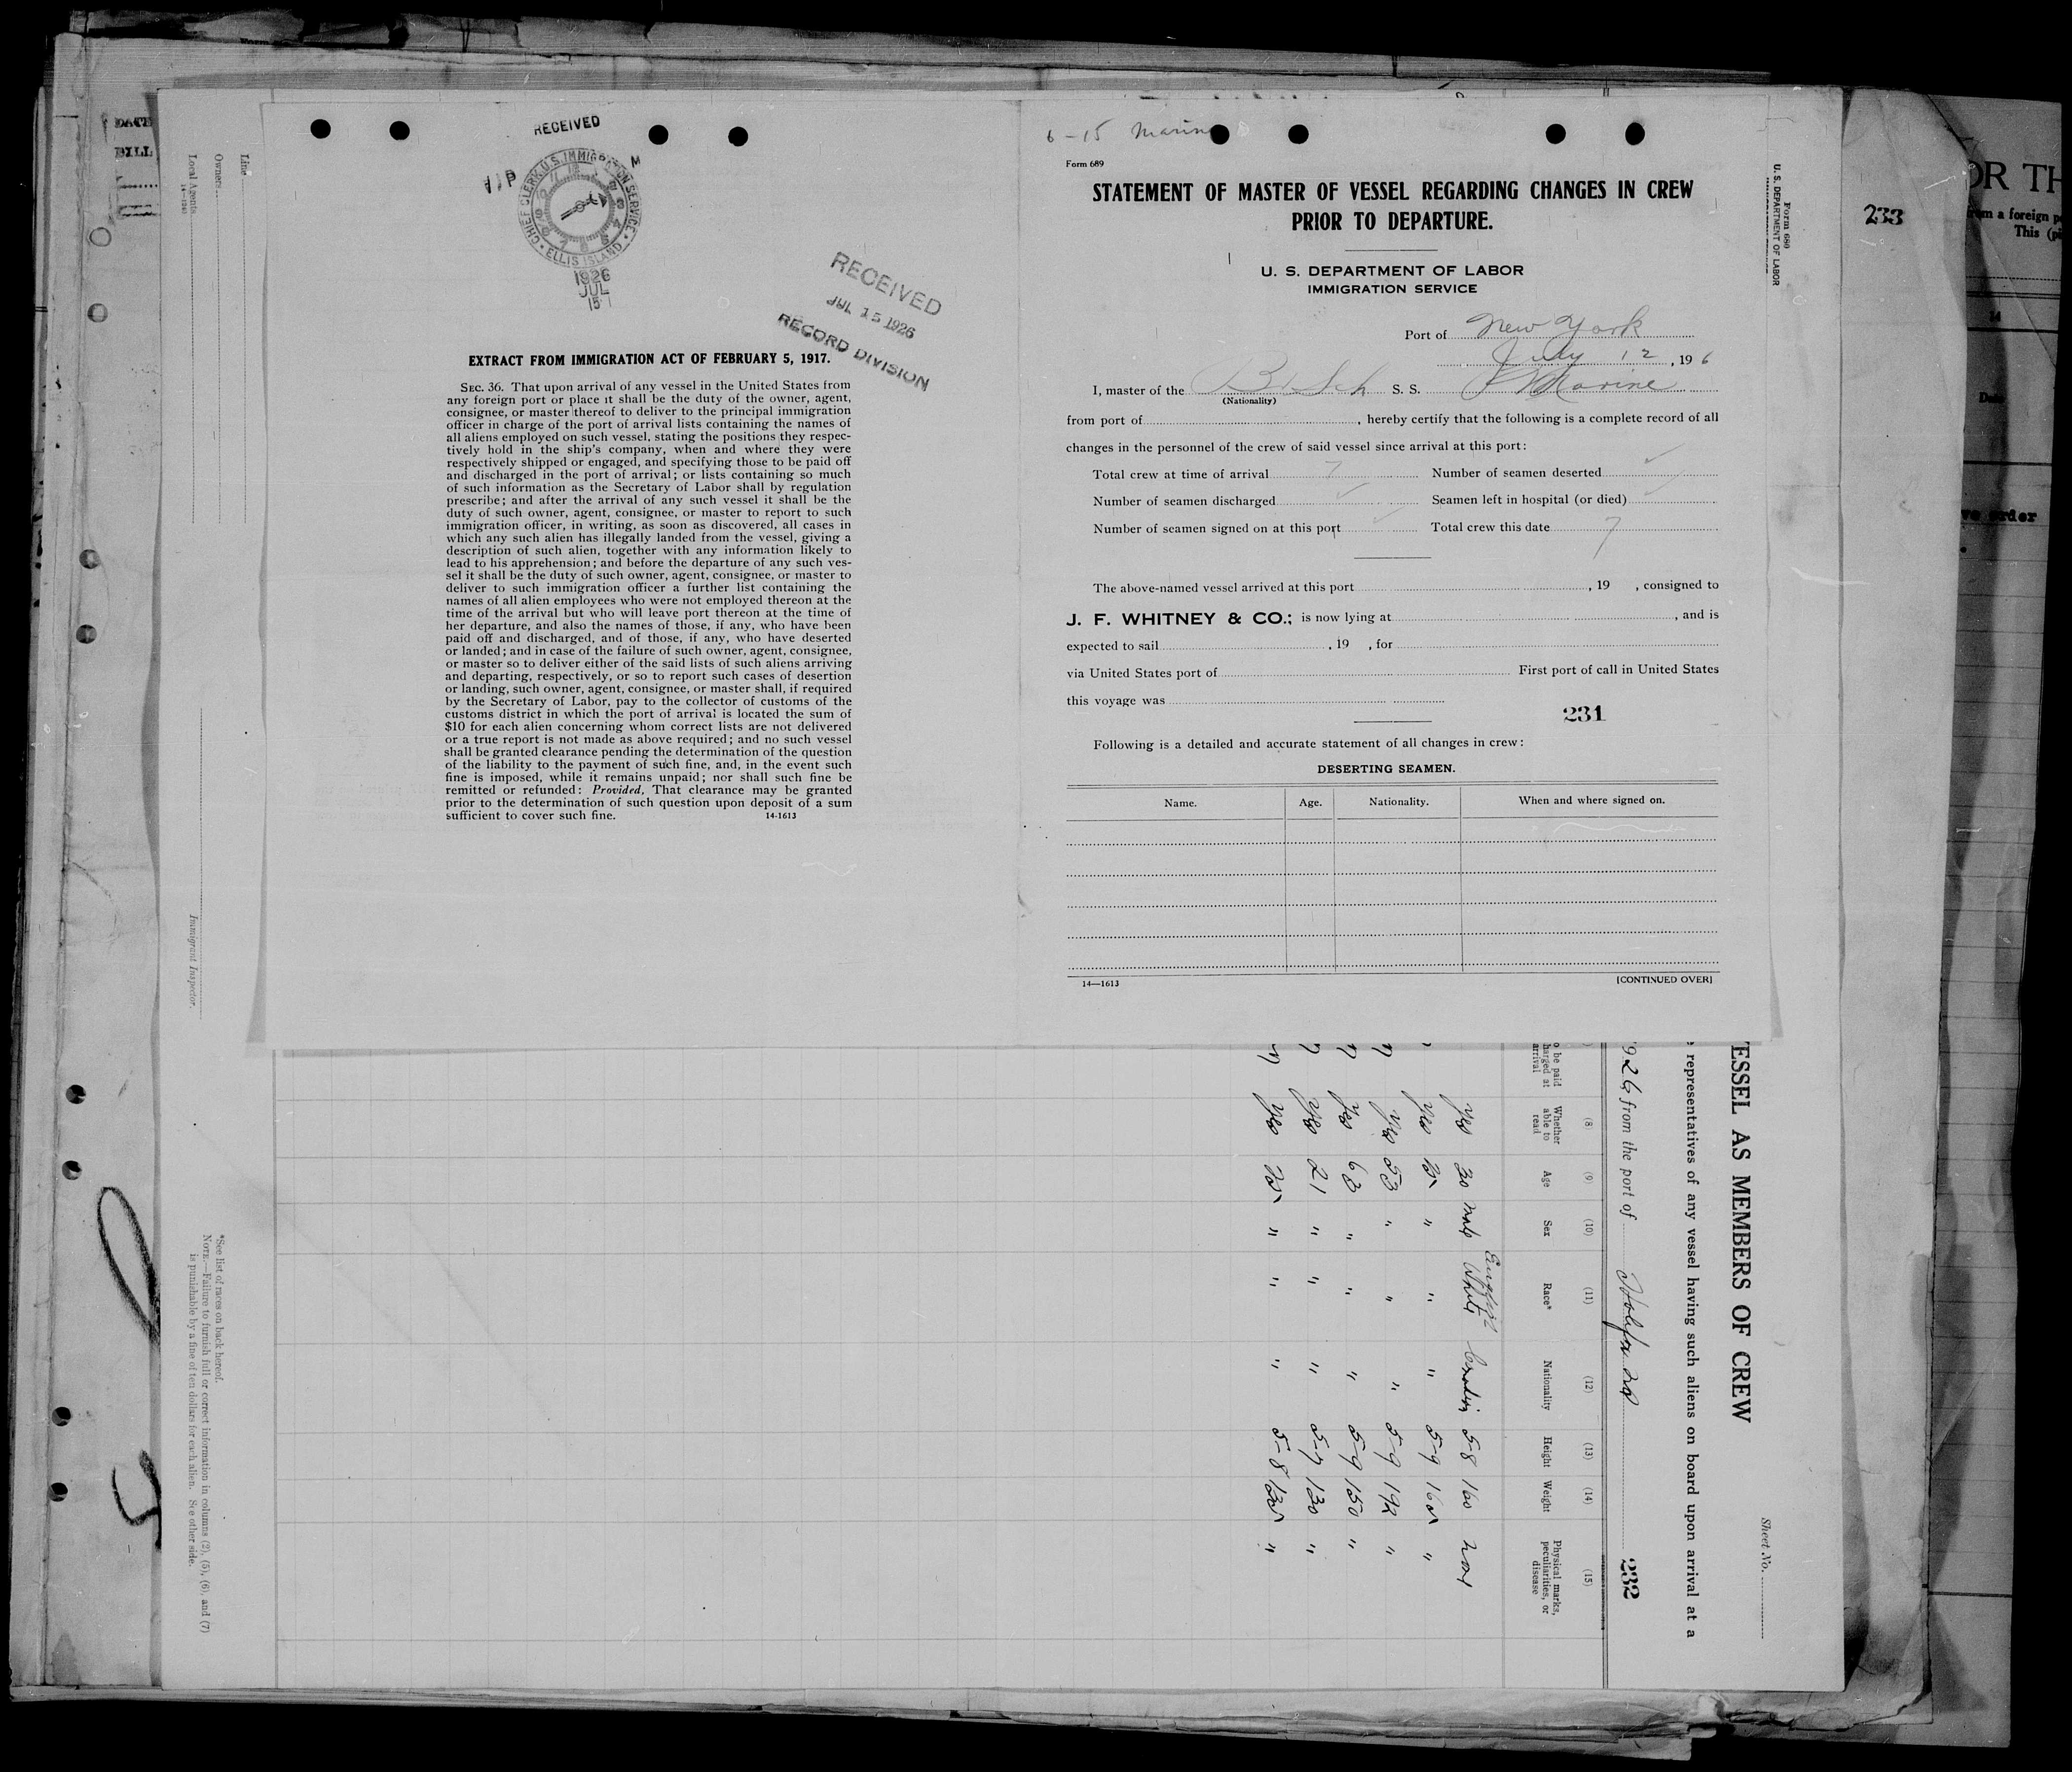 RECEIVED
CHIEF CLERK, U.S. IMMIGRATION SERVICE
ELLIS ISLAND
1926
JUL
15
RECEIVED
JUL 15 1926
RECORD DIVISION
EXTRACT FROM IMMIGRATION ACT OF FEBRUARY 5, 1917.
SEC. 36. That upon arrival of any vessel in the United States from
any foreign port or place it shall be the duty of the owner, agent,
consignee, or master thereof to deliver to the principal immigration
officer in charge of the port of arrival lists containing the names of
all aliens employed on such vessel, stating the positions they respec-
tively hold in the ship's company, when and where they were
respectively shipped or engaged, and specifying those to be paid off
and discharged in the port of arrival; or lists containing so much
of such information as the Secretary of Labor shall by regulation
prescribe; and after the arrival of any such vessel it shall be the
duty of such owner, agent, consignee, or master to report to such
immigration officer, in writing, as soon as discovered, all cases in
which any such alien has illegally landed from the vessel, giving a
description of such alien, together with any information likely to
lead to his apprehension; and before the departure of any such ves-
sel it shall be the duty of such owner, agent, consignee, or master to
deliver to such immigration officer a further list containing the
names of all alien employees who were not employed thereon at the
time of the arrival but who will leave port thereon at the time of
her departure, and also the names of those, if any, who have been
paid off and discharged, and of those, if any, who have deserted
or landed; and in case of the failure of such owner, agent, consignee,
or master so to deliver either of the said lists of such aliens arriving
and departing, respectively, or so to report such cases of desertion
or landing, such owner, agent, consignee, or master shall, if required
by the Secretary of Labor, pay to the collector of customs of the
customs district in which the port of arrival is located the sum of
$10 for each alien concerning whom correct lists are not delivered
or a true report is not made as above required; and no such vessel
shall be granted clearance pending the determination of the question
of the liability to the payment of such fine, and, in the event such
fine is imposed, while it remains unpaid; nor shall such fine be
remitted or refunded: Provided, That clearance may be granted
prior to the determination of such question upon deposit of a sum
sufficient to cover such fine. 14-1613
6-15 Marine
Form 689
STATEMENT OF MASTER OF VESSEL REGARDING CHANGES IN CREW
PRIOR TO DEPARTURE.
U. S. DEPARTMENT OF LABOR
IMMIGRATION SERVICE
Port of New York
July 12, 196
I, master of the Br Sch S. S. Marine
(Nationality)
from port of , hereby certify that the following is a complete record of all
changes in the personnel of the crew of said vessel since arrival at this port:
Total crew at time of arrival 7 Number of seamen deserted
Number of seamen discharged Seamen left in hospital (or died)
Number of seamen signed on at this port Total crew this date 7
The above-named vessel arrived at this port , 19 , consigned to
J. F. WHITNEY & CO.; is now lying at , and is
expected to sail , 19 , for
via United States port of First port of call in United States
this voyage was
231
Following is a detailed and accurate statement of all changes in crew:
DESERTING SEAMEN.
Name. Age. Nationality. When and where signed on.
14—1613 [CONTINUED OVER]
Form 680
U. S. DEPARTMENT OF LABOR
233
OR TH
m a foreign p
This (p
14
order
Sheet No.
ESSEL AS MEMBERS OF CREW
representatives of any vessel having such aliens on board upon arrival at a
926 from the port of Halifax NS
232
(8) (9) (10) (11) (12) (13) (14) (15)
o be paid
harged at
arrival
Whether
able to
read
Age Sex Race* Nationality Height Weight
Physical marks,
peculiarities, or
disease
English
yes 30 male White Canadian 5-8 160
yes " " " 5-9 "
yes 53 " " " 5-9 "
yes 63 " " " 5-9 150 "
yes 21 " " " 5-7 130 "
yes " " " 5-8 "
Line
Owners
Local Agents
14-1240
Immigrant Inspector.
*See list of races on back hereof.
NOTE.—Failure to furnish full or correct information in columns (2), (5), (6), and (7)
is punishable by a fine of ten dollars for each alien. See other side.
BILL